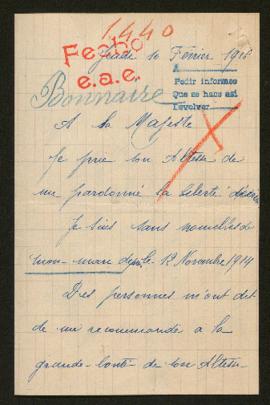 1440
Fecho
e.a.e.
10 Février 1918
A
Pedir informes
Que se haga así
Devolver
Bonnaire
A la Majesté
Je prie son Altesse de
me pardonné la liberté
Je suis sans nouvelles de
mon mari depuis le 12 Novembre 1914
Des personnes m'ont dit
de me recommandé a la
grande bonté de son Altesse